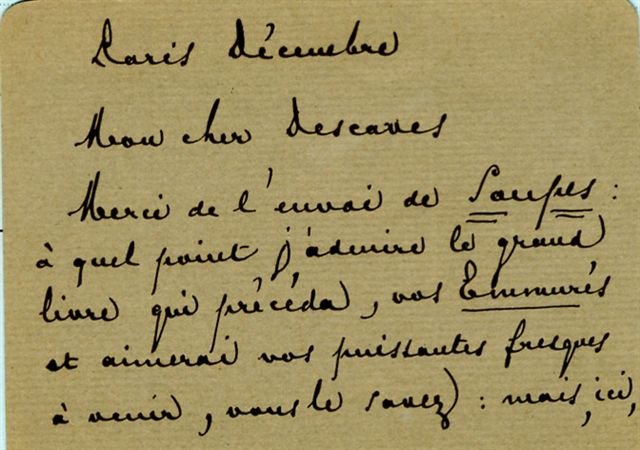 Paris Décembre
Mon cher Descaves
Merci de l'envoi de Soupes :
à quel point j'admire le grand
livre qui précéda, vos Emmurés
et aimerai vos puissantes fresques
à venir, vous le savez : mais, ici,